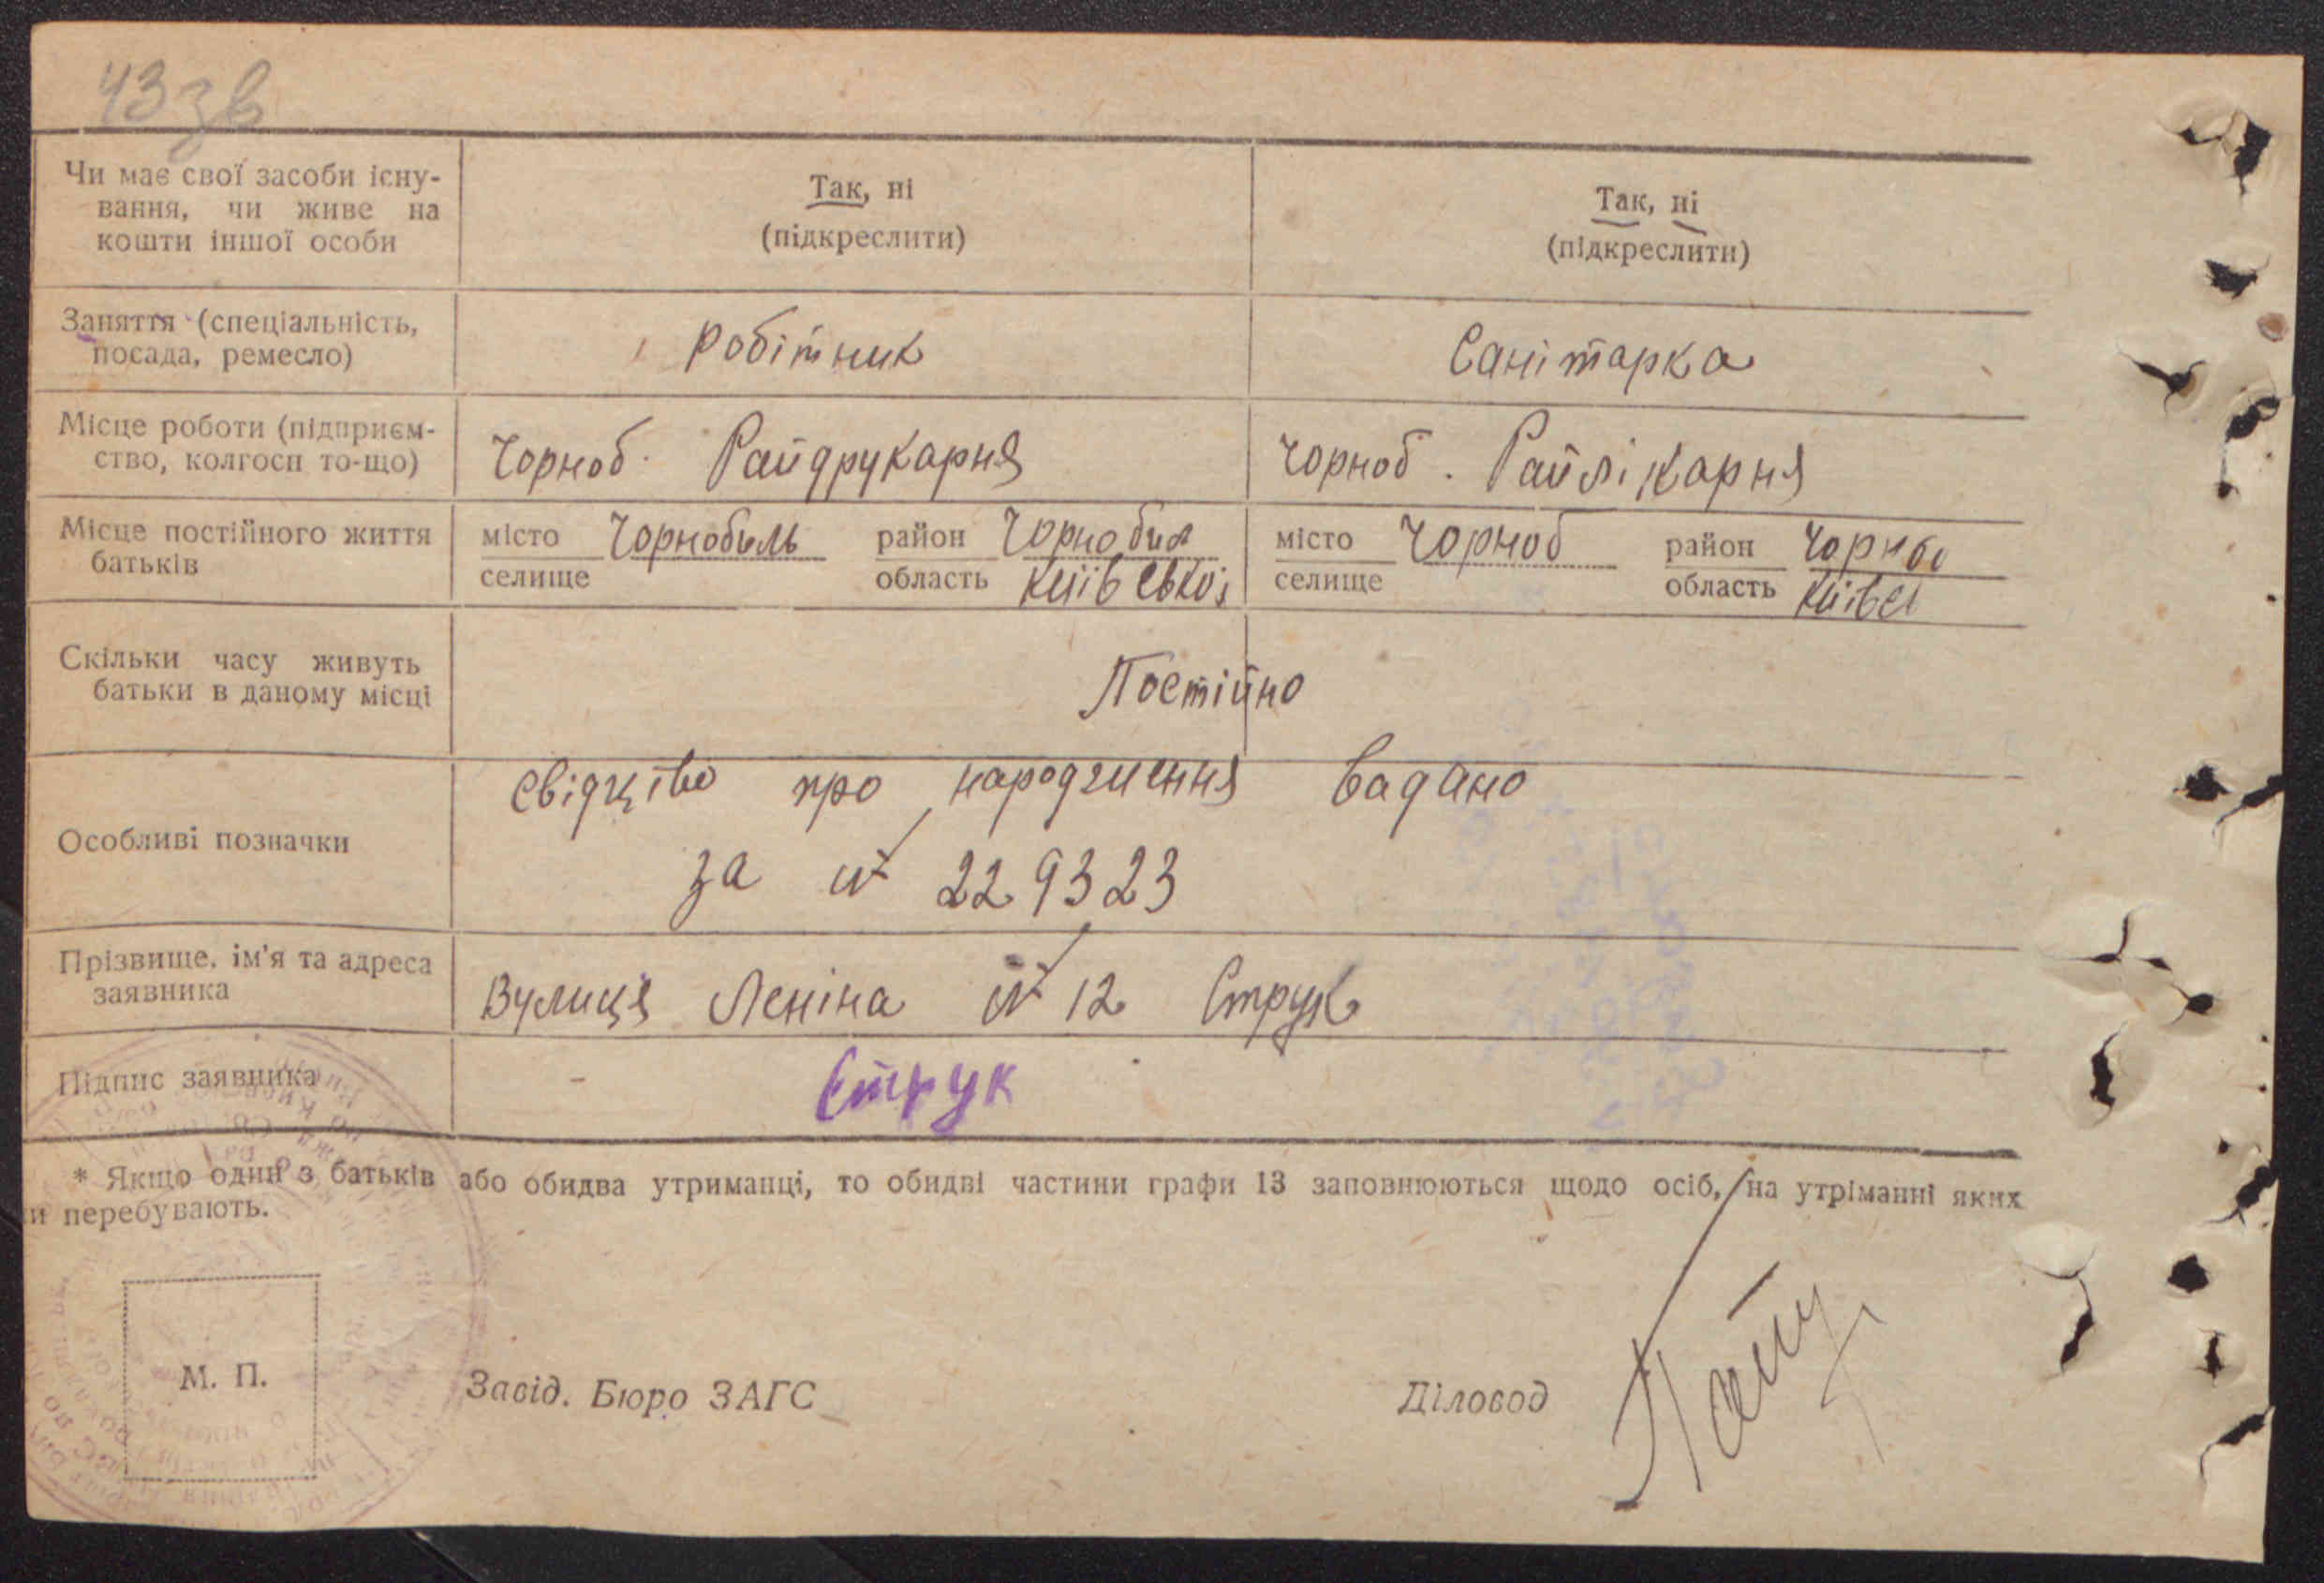 43зв
Чи має свої засоби існу-
вання, чи живе на
кошти іншої особи
Так, ні
(підкреслити)
Так, ні
(підкреслити)
Заняття (спеціальність,
посада, ремесло)
Робітник
Санітарка
Місце роботи (підприєм-
ство, колгосп то-що)
Чорноб. Райдрукарня
Чорноб. Райлікарня
Місце постійного життя
батьків
місто Чорнобиль
селище
район Чорнобил
область Київської
місто Чорноб
селище
район Чорноб
область Київс
Скільки часу живуть
батьки в даному місці
Постійно
Особливі позначки
Свідцтво про народження видано
за № 229323
Прізвище, ім'я та адреса
заявника
Вулиця Леніна № 12 Струк
Підпис заявника
Струк
* Якщо один з батьків або обидва утриманці, то обидві частини графи 13 заповнюються щодо осіб, на утріманні яких
и перебувають.
М. П.
Завід. Бюро ЗАГС
Діловод